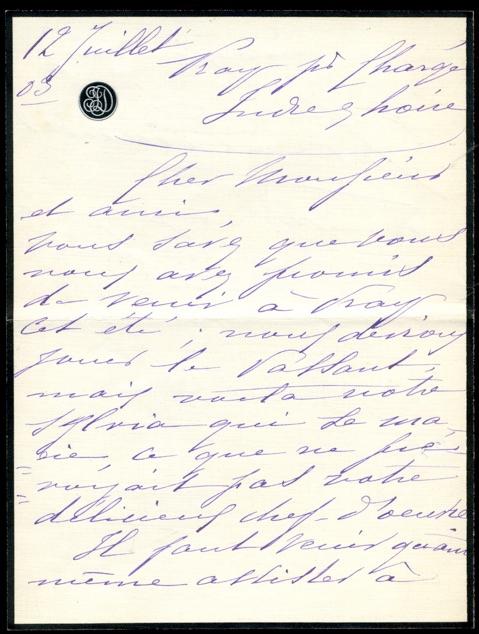 12 Juillet
03
Pray p^r Chargé
Indre & Loire
Cher Monsieur
et ami,
vous savez que vous
nous avez promis
de venir à Pray
cet été ; nous devions
jouer le Passant,
mais voilà notre
Sylvia qui se ma-
rie ce que ne pré-
=voyait pas votre
délicieux chef-d'oeuvre
Il faut venir quand
même assister à